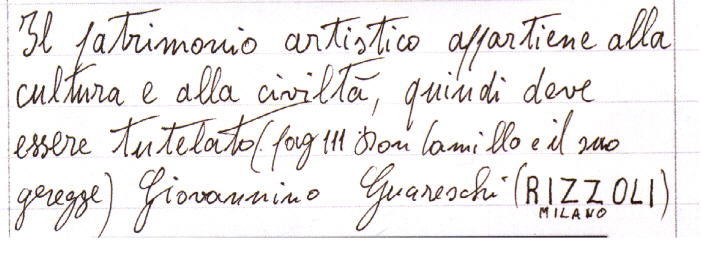 Il patrimonio artistico appartiene alla
cultura e alla civiltà, quindi deve
essere tutelato (pag 111 Don Camillo e il suo
geregge) Giovannino Guareschi (RIZZOLI)
MILANO